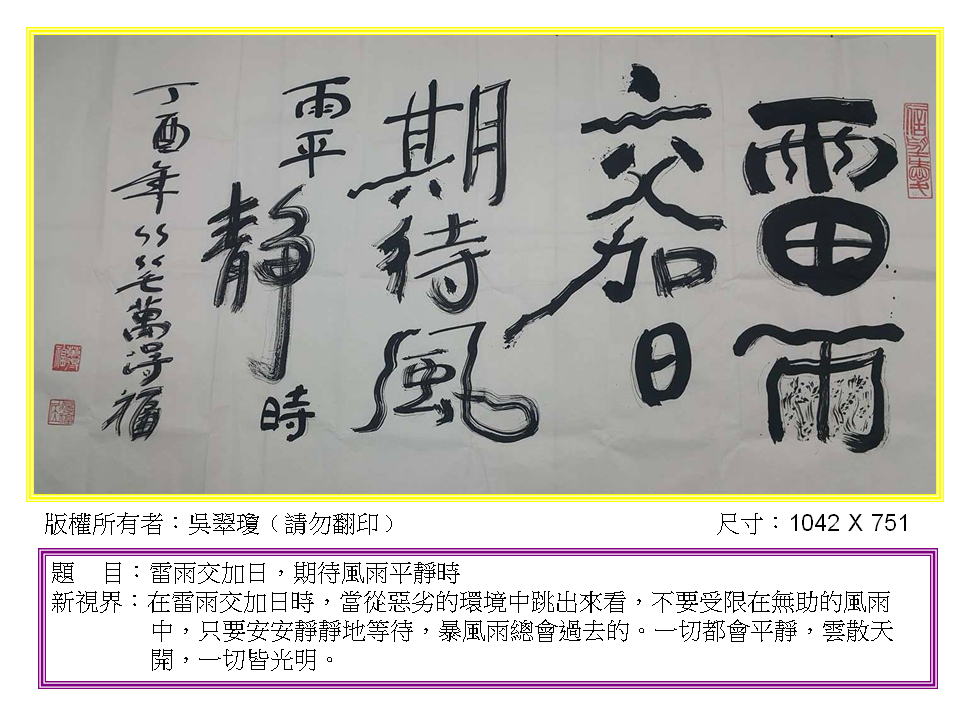 雷雨
交加日
期待風
雨平靜時
丁酉年竹笔萬得福
版權所有者：吳翠瓊（請勿翻印）
尺寸：1042 X 751
題　目：雷雨交加日，期待風雨平靜時
新視界：在雷雨交加日時，當從惡劣的環境中跳出來看，不要受限在無助的風雨
中，只要安安靜靜地等待，暴風雨總會過去的。一切都會平靜，雲散天
開，一切皆光明。